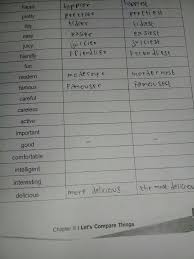 happy happier happiest
pretty prettier prettiest
tidy tidier tidiest
easy easier easiest
juicy juicier juiciest
friendly friendlier friendliest
fun
modern moderner modernmost
famous famouser famousest
careful
careless
active
important
good
comfortable
intelligent
interesting
delicious more delicious the most delicious
Chapter 8 | Let's Compare Things